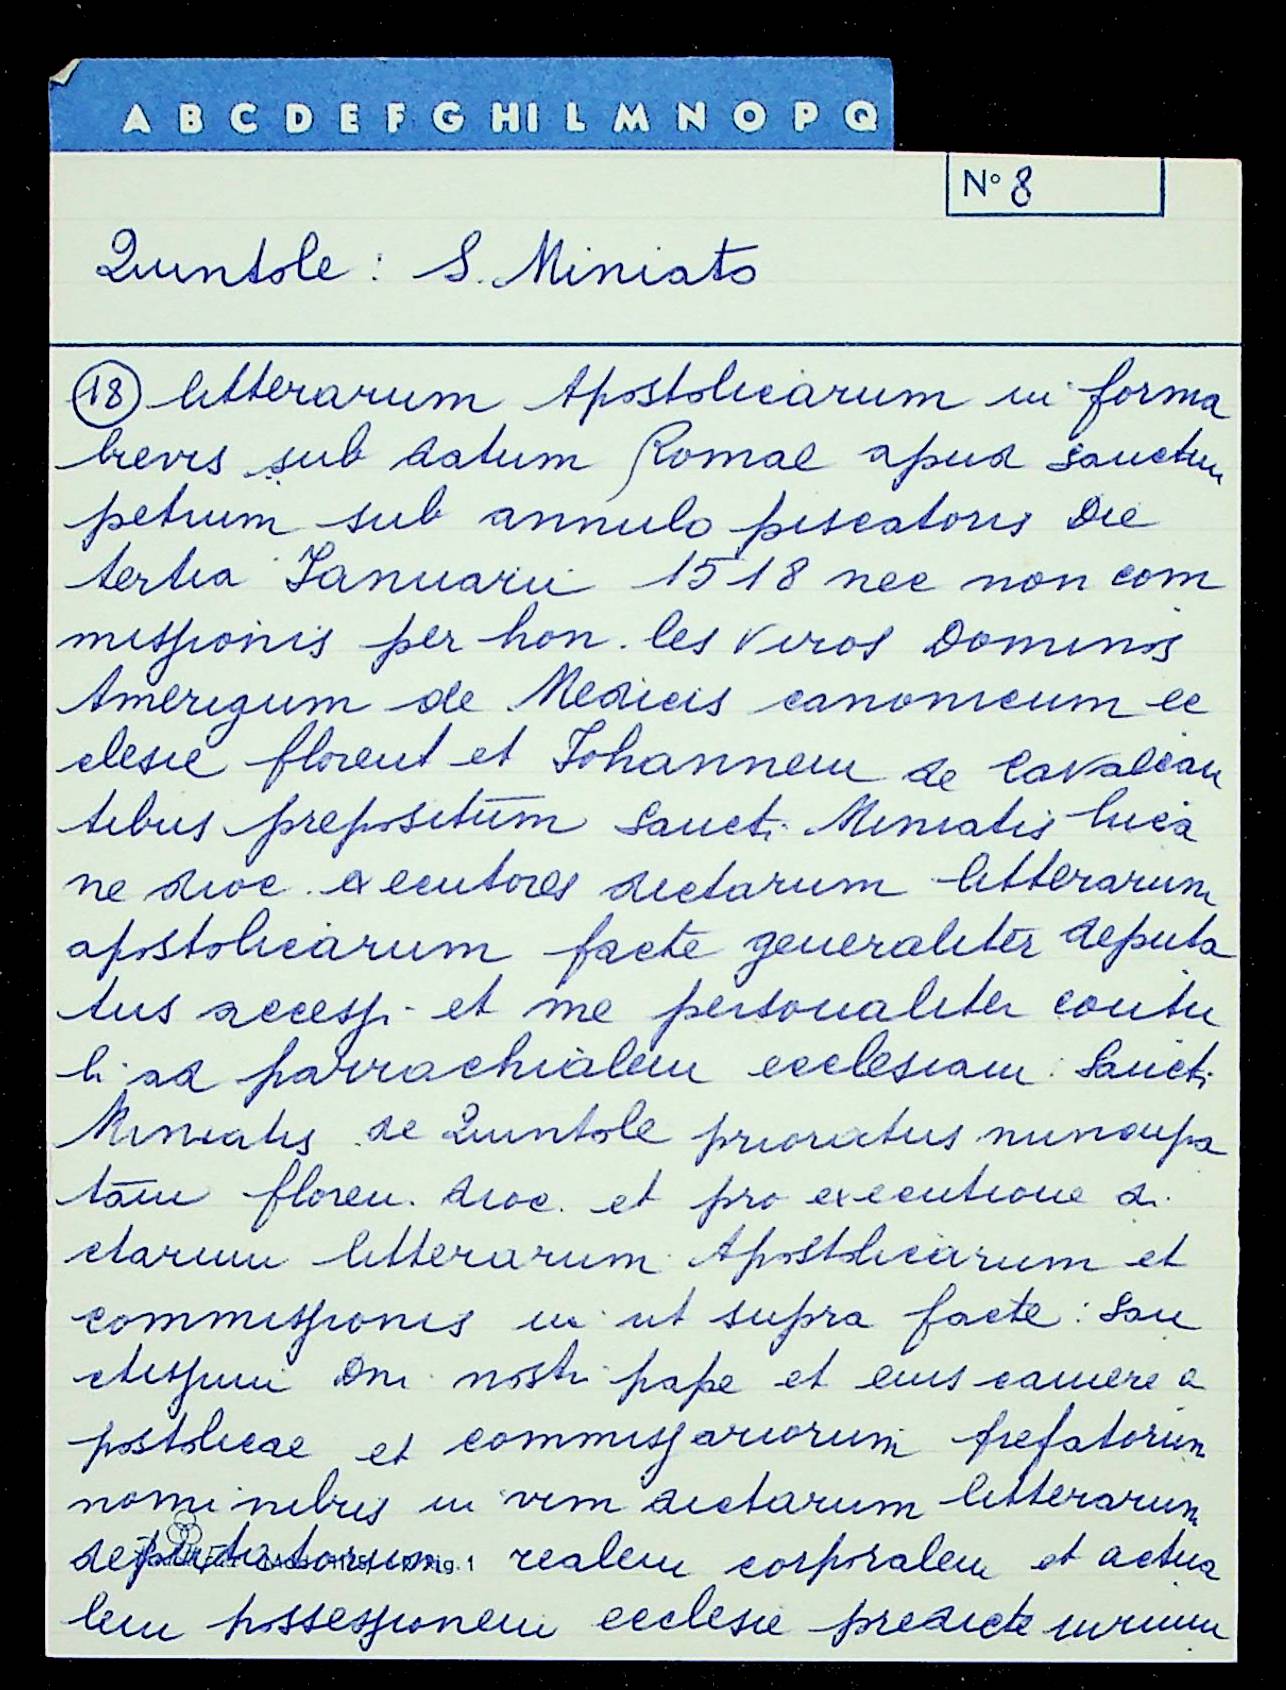 A B C D E F G HI L M N O P Q
N° 8
Quintole : S. Miniato
18 litterarum Apostolicarum in forma
brevis sub datum Romae apud Sanctum
petrum sub annulo piscatoris Die
tertia Ianuarii 1518 nec non com
missionis per hon. les viros Dominos
Amerigum de Medicis canonicum ec
clesie florent et Iohannem de Cavalcan
tibus prepositum Sancti Miniatis luca
ne dioc. executores dictarum litterarum
apostolicarum facte generaliter deputa
tus accessi et me personaliter contu
li ad parrachialem ecclesiam : Sancti
Miniatis de Quintole prioratus nuncupa
tam floren. dioc. et pro executione di
ctarum litterarum Apostolicarum et
commissionis in ut supra facte : San
ctissimi Dni nostri pape et eius camere a
postolicae et commissariorum prefatorum
nominibus in vim dictarum litterarum
deputatorum realem corporalem et actua
lem possessionem ecclesie predicte iurium